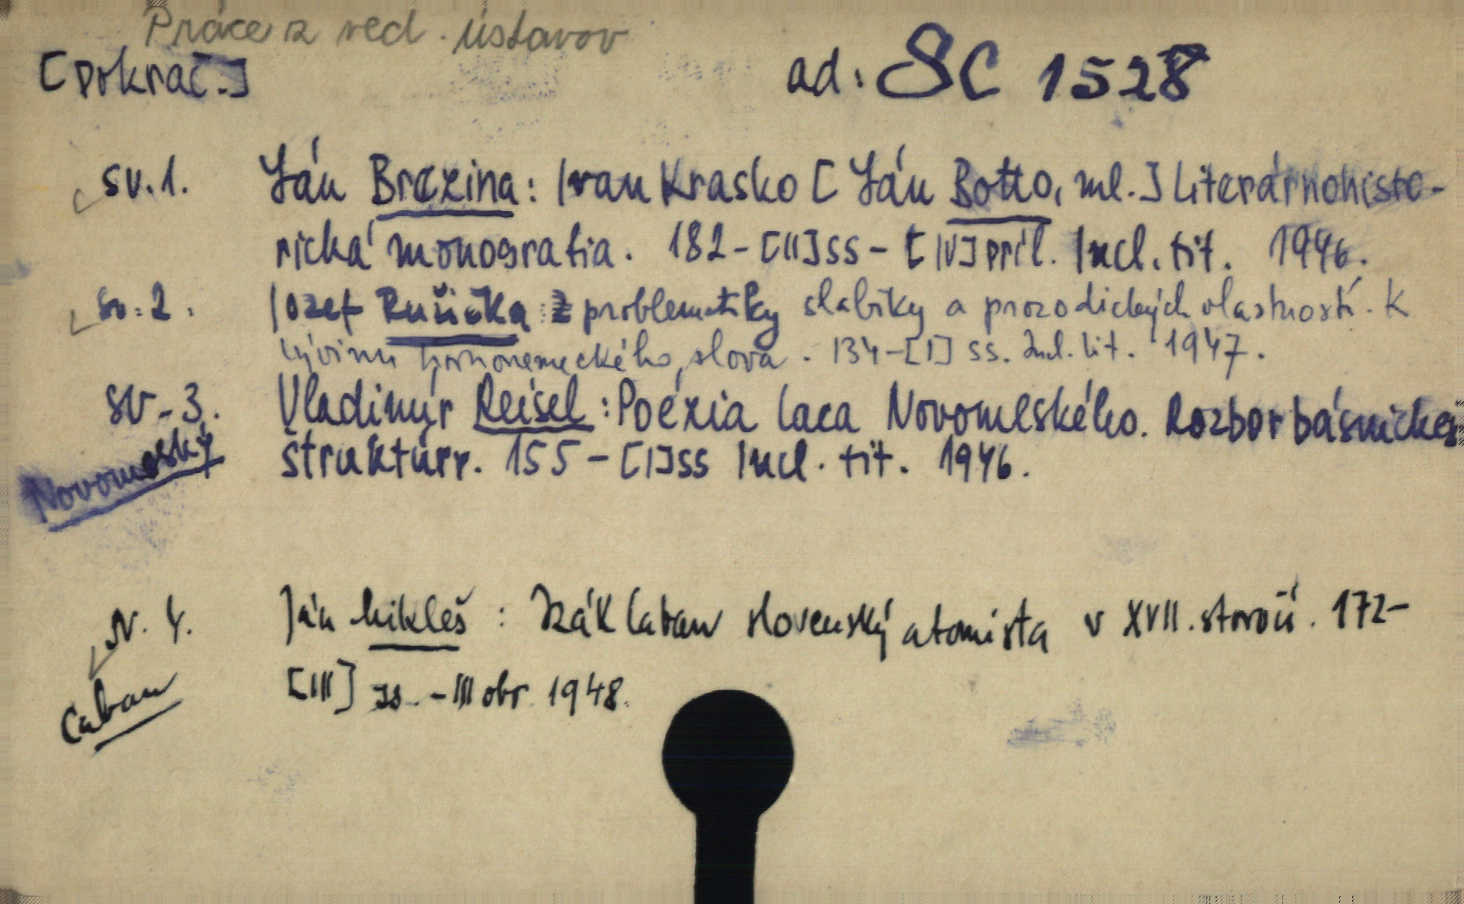 Práce z ved. ústavov
[pokrač.] ad: SC 1528
sv. 1. Ján Brezina: Ivan Krasko [Ján Botto, ml.] Literárnohisto-
rická monografia. 182-[II]ss-[IV] príl. Incl. tit. 1946.
Sv. 2. Jozef Ružička: Z problematiky slabiky a prozodických vlastností. K
vývinu hornonemeckého slova. 134-[I] ss. Incl. tit. 1947.
sv. 3. Vladimýr Reisel: Poézia Laca Novomeského. Rozbor básnickej
Novomeský štruktúry. 155-[I]ss Incl. tit. 1946.
sv. 4. Ján Mikleš: Izák Caban slovenský atomista v XVII. storočí. 172-
Caban [III] ss. - III obr. 1948.